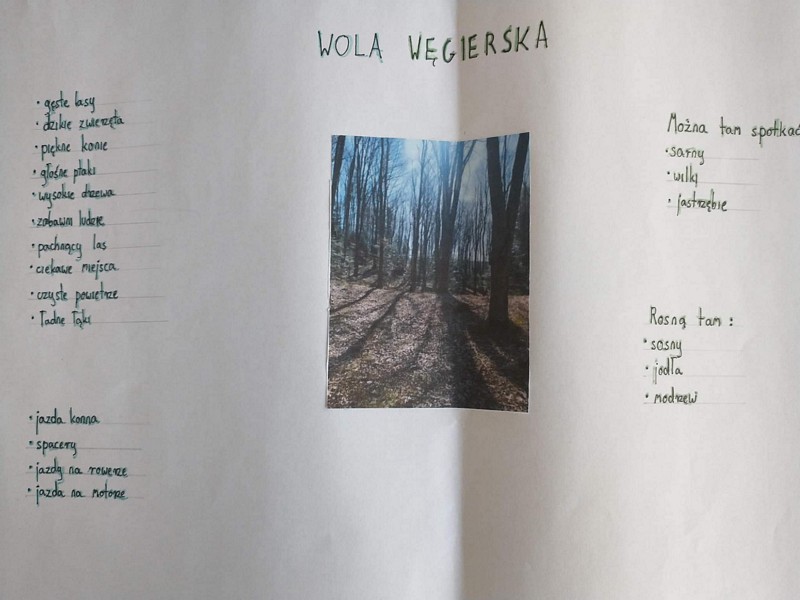 WOLA WĘGIERSKA
• gęste lasy
• dzikie zwierzęta
• piękne konie
• głośne ptaki
• wysokie drzewa
• zabawni ludzie
• pachnący las
• ciekawe miejsca
• czyste powietrze
• ładne łąki
• jazda konna
• spacery
• jazda na rowerze
• jazda na motorze
Można tam spotkać
• sarny
• wilki
• jastrzębie
Rosną tam:
• sosny
• jodła
• modrzew